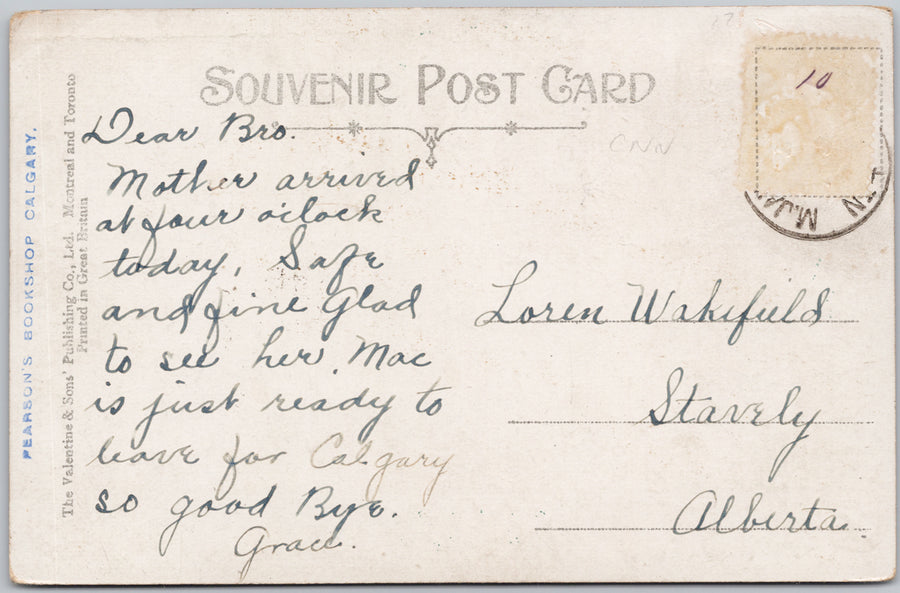 SOUVENIR POST CARD
Dear Bro.
Mother arrived
at four o'clock
today, Safe
and fine Glad
to see her. Mac
is just ready to
leave for Calgary
so good Bye.
Grace.
10
CNN
Loren Wakefield
Stavely
Alberta.
PEARSON'S BOOKSHOP CALGARY.
The Valentine & Sons' Publishing Co., Ltd. Montreal and Toronto
Printed in Great Britain